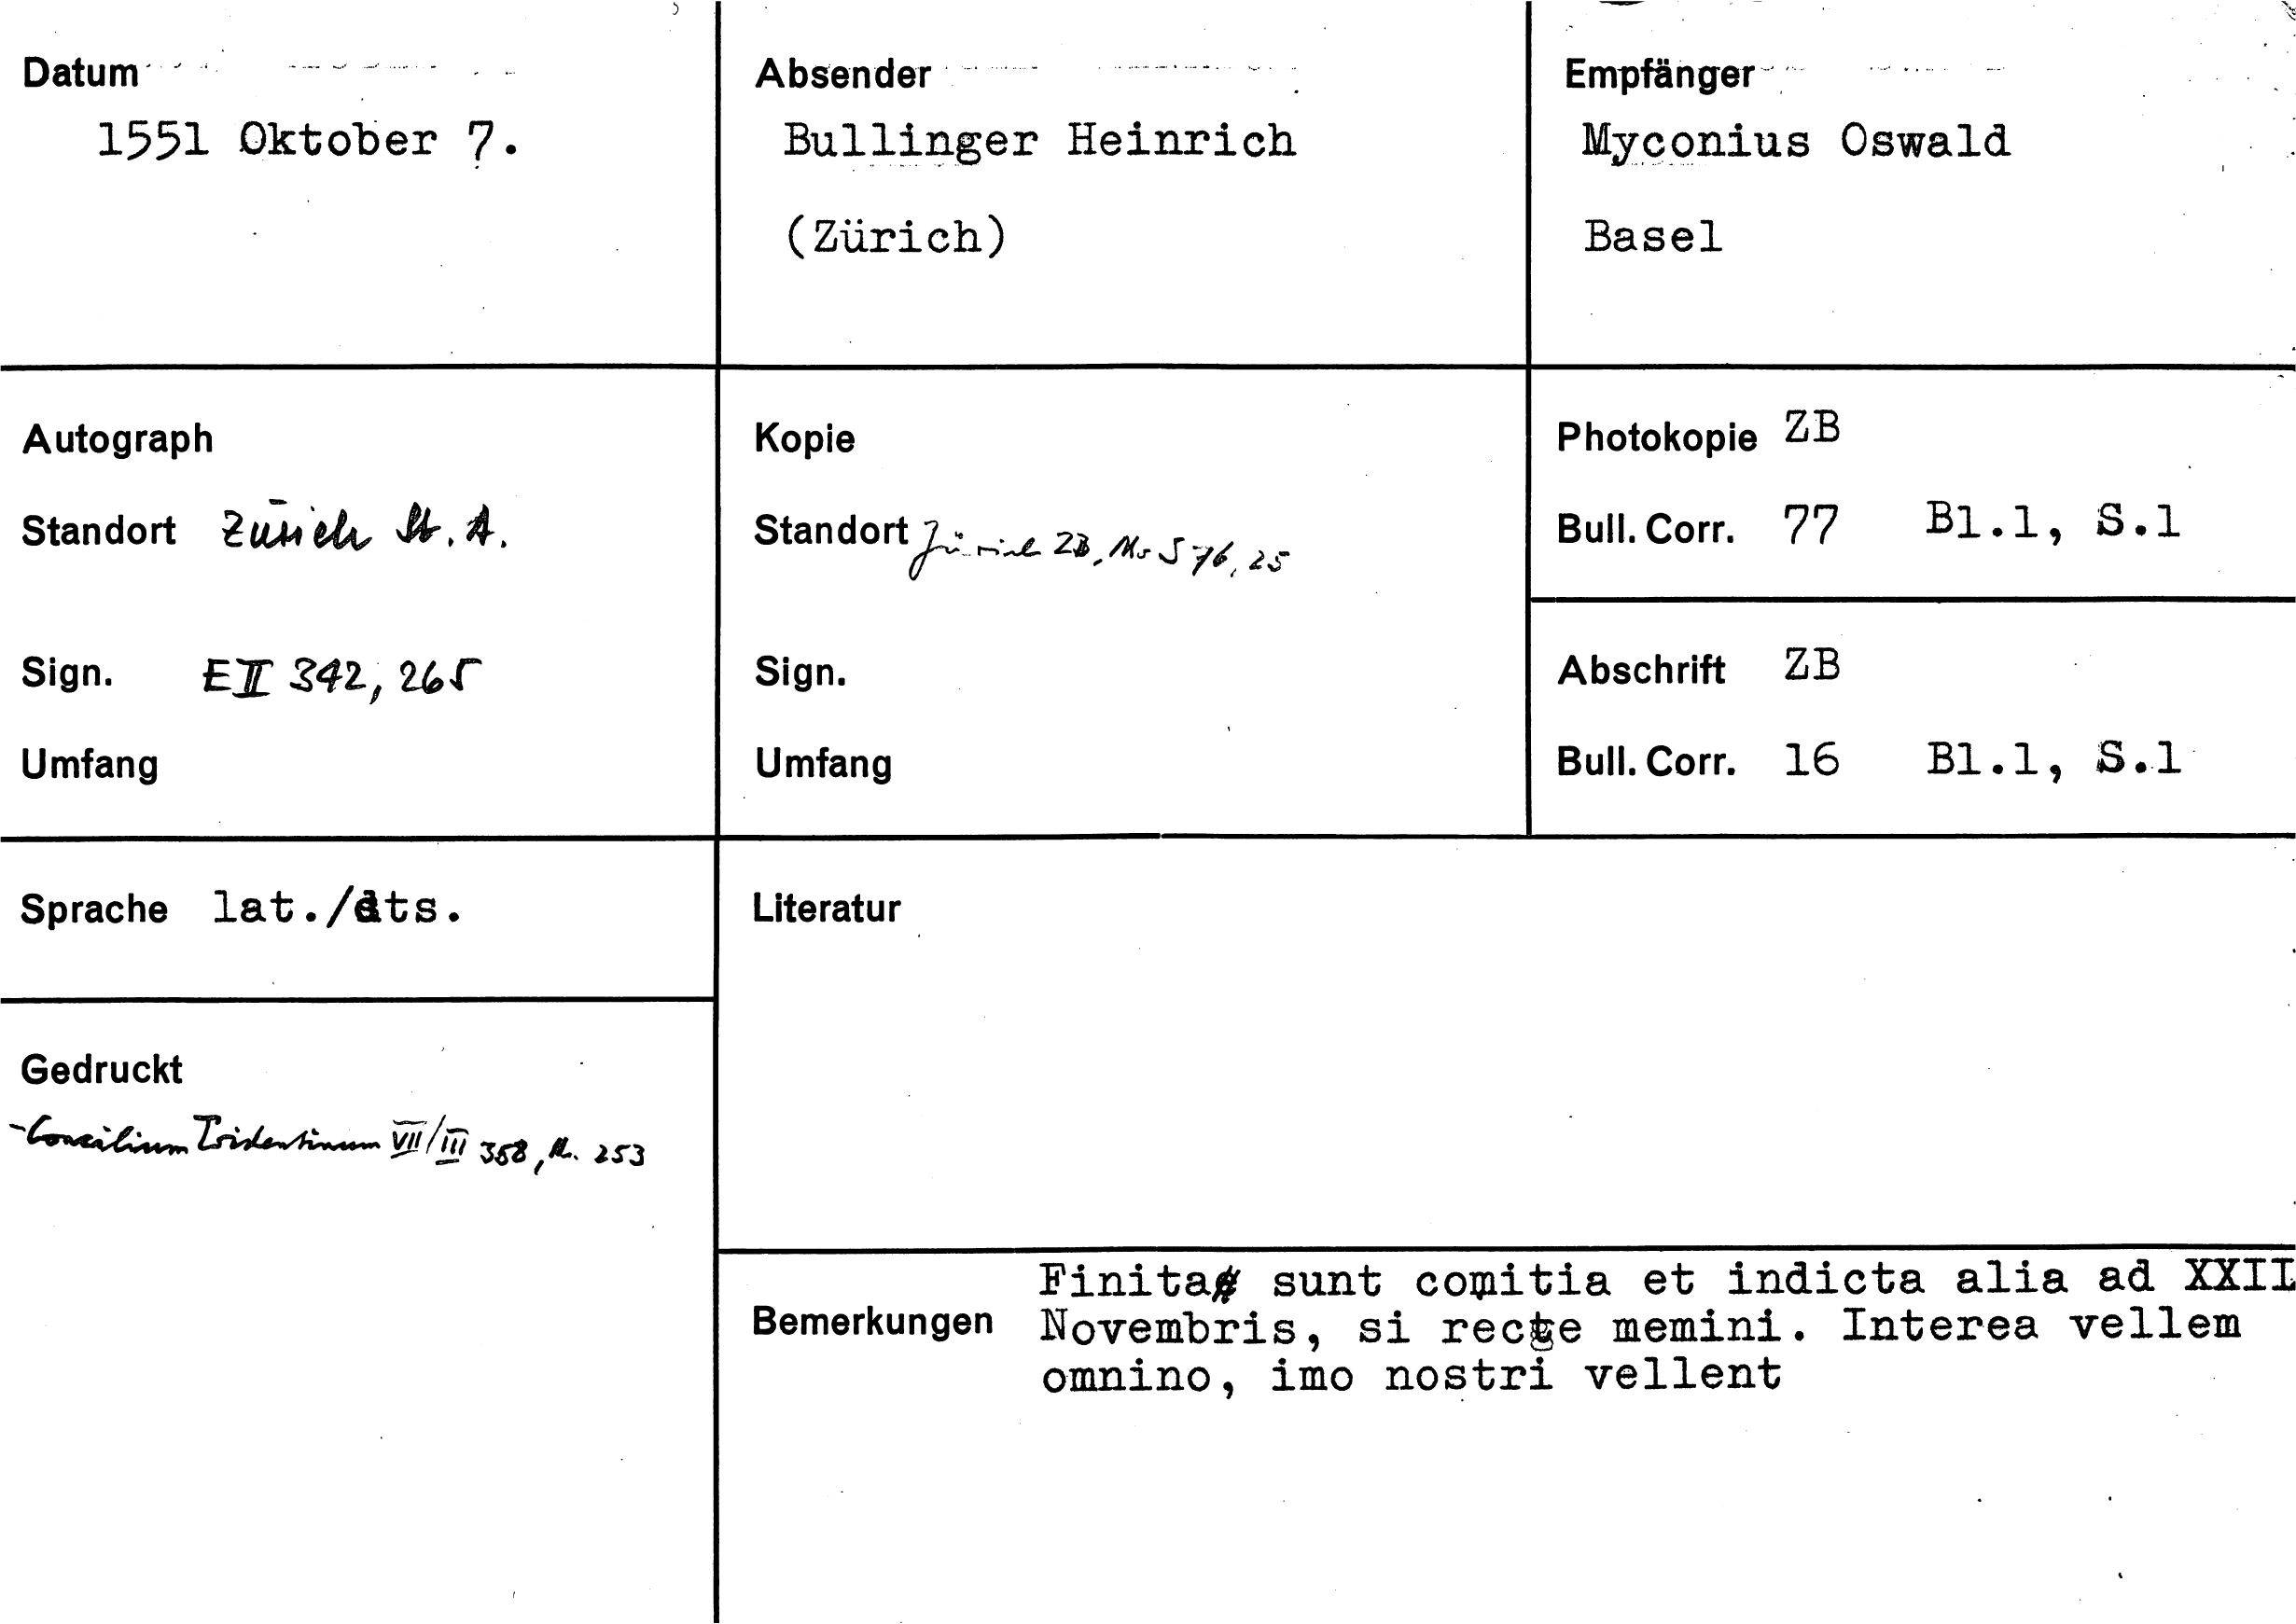 Datum
1551 Oktober 7.
Absender
Bullinger Heinrich
(Zürich)
Empfänger
Myconius Oswald
Basel
Autograph
Standort Zürich St. A.
Sign. E II 342, 265
Umfang
Kopie
Standort Zürich ZB, Ms S 76, 25
Sign.
Umfang
Photokopie ZB
Bull. Corr. 77 Bl.1, S.1
Abschrift ZB
Bull. Corr. 16 Bl.1, S.1
Sprache lat./dts.
Literatur
Gedruckt
- Concilium Tridentinum VII/III 358, Nr. 253
Bemerkungen
Finita sunt comitia et indicta alia ad XXII
Novembris, si recte memini. Interea vellem
omnino, imo nostri vellent